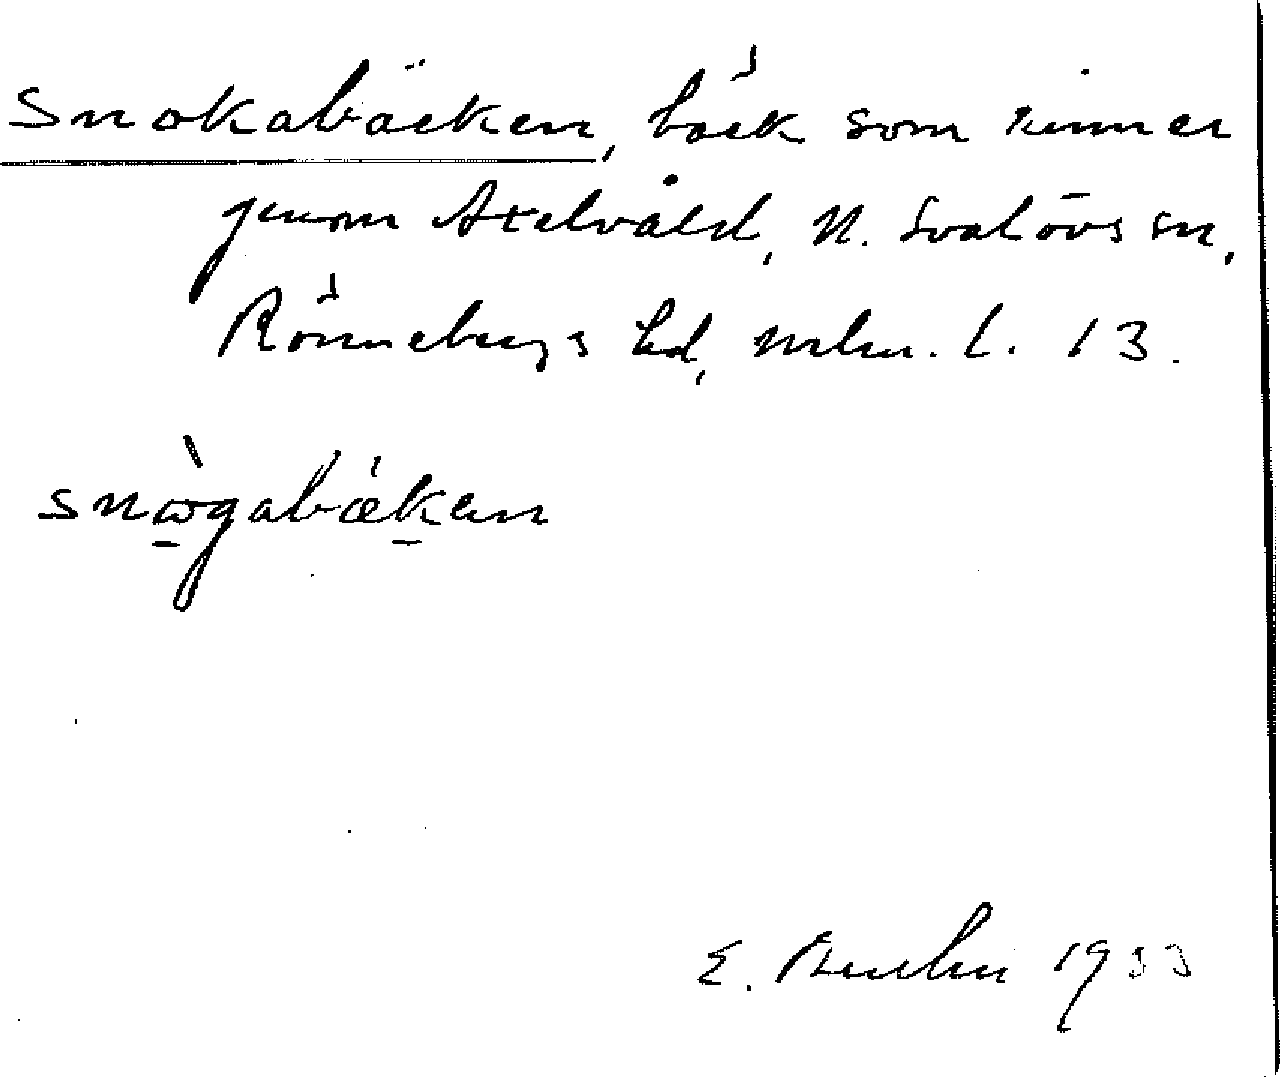 Snokabäcken, bäck som rinner
genom Axelvåld, N. Svalövs sn,
Rönnebergs hd, Mlm. l. 13.
snὼ̠gabæk̠en
E. 1933